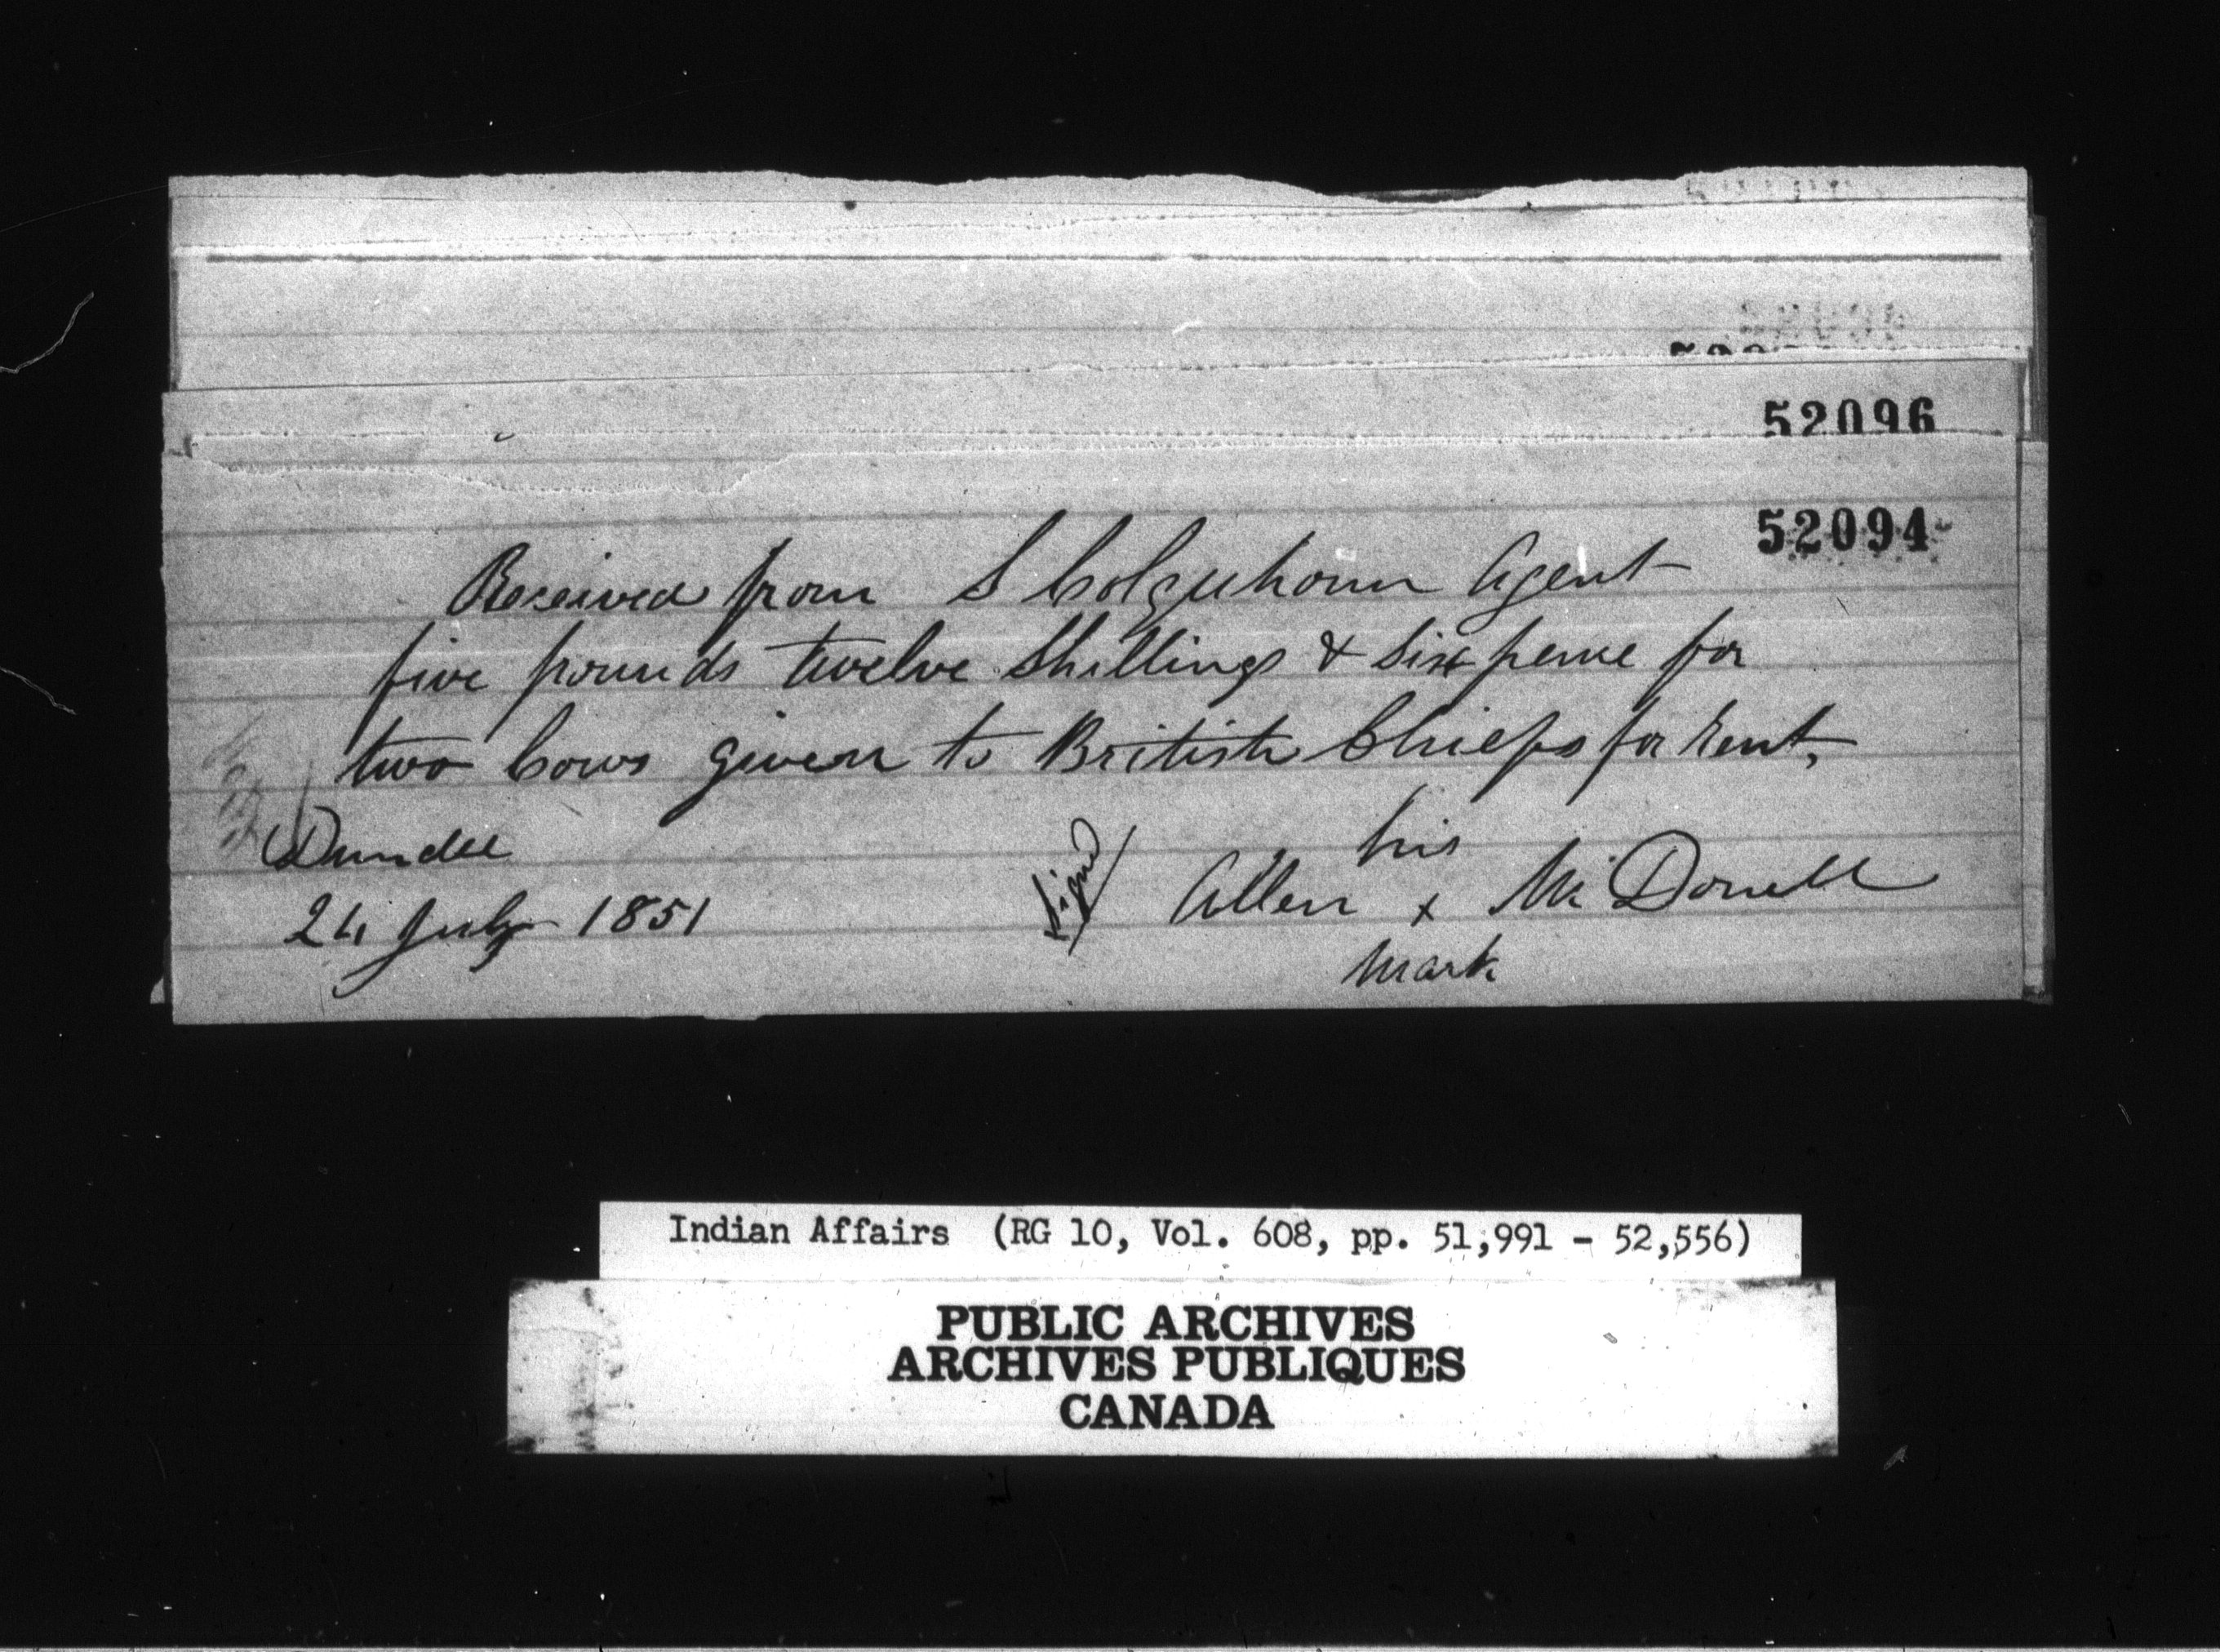 52096
52094
Received from S Colquhoun Agent
five pounds twelve Shillings & Six pence for
two Cows given to British Chiefs for Rent,
Dundee
24 July 1851
Signed
his
Allen x McDonell
mark
Indian Affairs (RG 10, Vol. 608, pp. 51,991 - 52,556)
PUBLIC ARCHIVES
ARCHIVES PUBLIQUES
CANADA